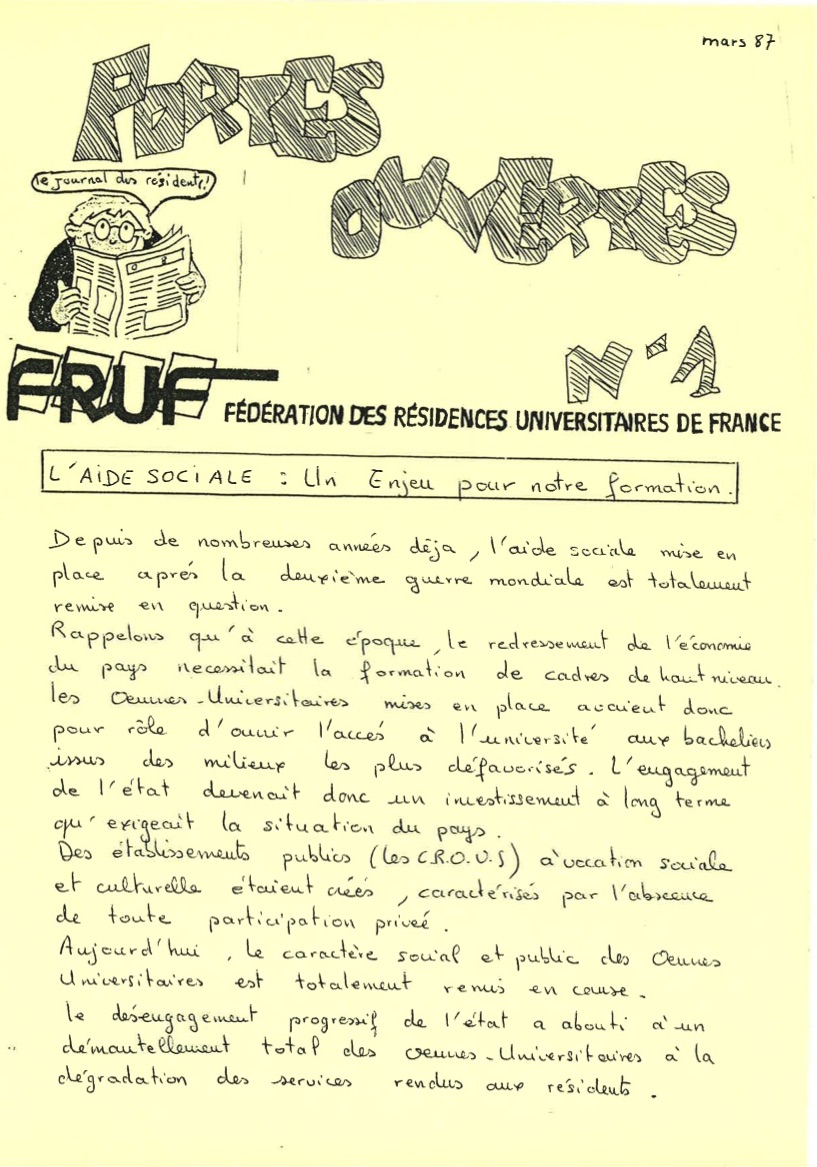 mars 87
PORTES
OUVERTES
le journal des résidents!
N°1
FRUF FÉDÉRATION DES RÉSIDENCES UNIVERSITAIRES DE FRANCE
L'AIDE SOCIALE : Un Enjeu pour notre formation.
Depuis de nombreuses années déja, l'aide sociale mise en
place aprés la deuxième guerre mondiale est totalement
remise en question.
Rappelons qu'à cette époque, le redressement de l'économie
du pays necessitait la formation de cadres de haut niveau.
les Oeuvres-Universitaires mises en place avaient donc
pour rôle d'ouvrir l'accés à l'université aux bacheliers
issus des milieux les plus défavorisés. L'engagement
de l'état devenait donc un investissement à long terme
qu'exigeait la situation du pays.
Des établissements publics (les C.R.O.U.S) à vocation sociale
et culturelle étaient créés, caractérisés par l'abscence
de toute participation privée.
Aujourd'hui, le caractère social et public des Oeuvres
Universitaires est totalement remis en cause.
le désengagement progressif de l'état a abouti à un
démantellement total des oeuvres-Universitaires à la
dégradation des services rendus aux résidents.